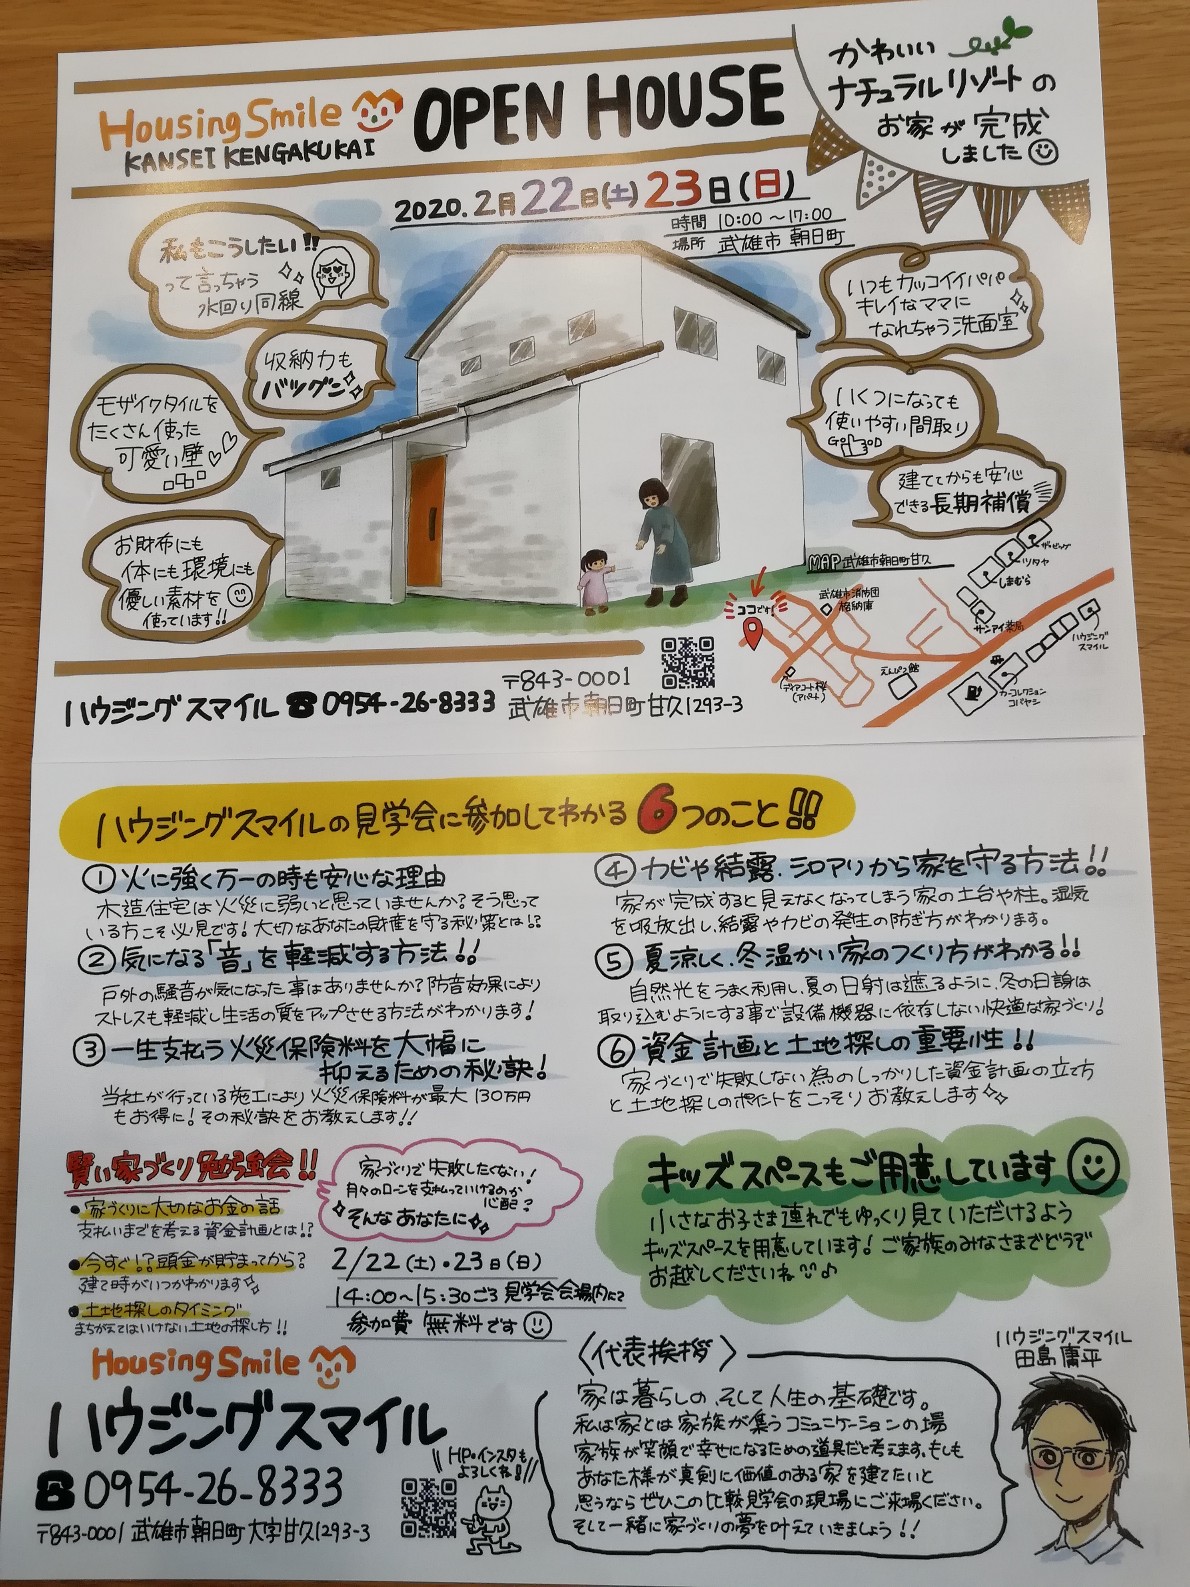 かわいい
ナチュラルリゾートの
お家が完成
しました
Housing Smile
KANSEI KENGAKUKAI
OPEN HOUSE
2020.2月22日(土)23日(日)
時間 10:00～17:00
場所 武雄市 朝日町
私もこうしたい!!
って言っちゃう
水回り同線
収納力も
バツグン
モザイクタイルを
たくさん使った
可愛い壁
お財布にも
体にも環境にも
優しい素材を
使っています!!
いつもカッコイイパパ
キレイなママに
なれちゃう洗面室
いくつになっても
使いやすい間取り
建ててからも安心
できる長期補償
MAP 武雄市朝日町甘久
ココです!
武雄市消防団
格納庫
ザ・ビッグ
ツタヤ
しまむら
サンアイ薬局
ハウジング
スマイル
えんぴつ館
カーコレクション
コバヤシ
ディアコート桜
(アパート)
ハウジングスマイル ☎0954-26-8333
〒843-0001
武雄市朝日町甘久1293-3
ハウジングスマイルの見学会に参加してわかる6つのこと!!
①火に強く万一の時も安心な理由
木造住宅は火災に弱いと思っていませんか?そう思って
いる方こそ必見です!大切なあなたの財産を守る秘策とは!?
②気になる「音」を軽減する方法!!
戸外の騒音が気になった事はありませんか?防音効果により
ストレスも軽減し生活の質をアップさせる方法がわかります!
③一生支払う火災保険料を大幅に
抑えるための秘訣!
当社が行っている施工により火災保険料が最大130万円
もお得に!その秘訣をお教えします!!
④カビや結露.シロアリから家を守る方法!!
家が完成すると見えなくなってしまう家の土台や柱。湿気
を吸放出し、結露やカビの発生の防ぎ方がわかります。
⑤夏涼しく、冬温かい家のつくり方がわかる!!
自然光をうまく利用し、夏の日射は遮るように、冬の日謝は
取り込むようにする事で設備機器に依存しない快適な家づくり!
⑥資金計画と土地探しの重要性!!
家づくりで失敗しない為のしっかりした資金計画の立て方
と土地探しのポイントをこっそりお教えします
賢い家づくり勉強会!!
•家づくりに大切なお金の話
支払いまでを考える資金計画とは!?
•今すぐ!?頭金が貯まってから?
建て時がいつかわかります
•土地探しのタイミング
まちがえてはいけない土地の探し方!!
家づくりで失敗したくない!
月々のローンを支払っていけるのか
心配?
そんなあなたに
2/22(土)・23日(日)
14:00～15:30ごろ 見学会会場内にて
参加費 無料です
キッズスペースもご用意しています
小さなお子さま連れでもゆっくり見ていただけるよう
キッズスペースを用意しています!ご家族のみなさまでどうぞ
お越しくださいね♪
Housing Smile
ハウジングスマイル
☎0954-26-8333
〒843-0001 武雄市朝日町大字甘久1293-3
HP・インスタも
よろしくね!
〈代表挨拶〉
家は暮らしの、そして人生の基礎です。
私は家とは家族が集うコミュニケーションの場
家族が笑顔で幸せになるための道具だと考えます。もしも
あなた様が真剣に価値のある家を建てたいと
思うならぜひこの比較見学会の現場にご来場ください。
そして一緒に家づくりの夢を叶えていきましょう!!
ハウジングスマイル
田島庸平